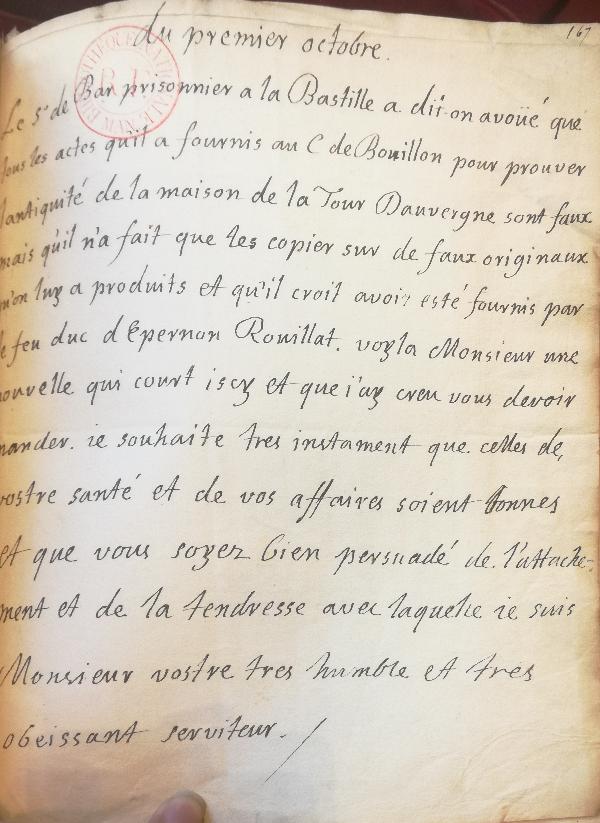 167
du premier octobre.
BIBLIOTHEQUE NATIONALE MAN
R F
Le Sr de Bar prisonnier a la Bastille a dit-on avoüé que
tous les actes qu'il a fournis au C de Bouillon pour prouver
l'antiquité de la maison de la Tour Dauvergne sont faux
mais qu'il n'a fait que les copier sur de faux originaux
qu'on luy a produits et qu'il croit avoir esté fournis par
le feu duc d'Epernon Rouillat. voyla Monsieur une
nouvelle qui court icy et que i'ay creu vous devoir
mander. ie souhaite tres instament que celles de
vostre santé et de vos affaires soient bonnes
et que vous soyez bien persuadé de l'attache-
ment et de la tendresse avec laquelle ie suis
Monsieur vostre tres humble et tres
obeissant serviteur. /